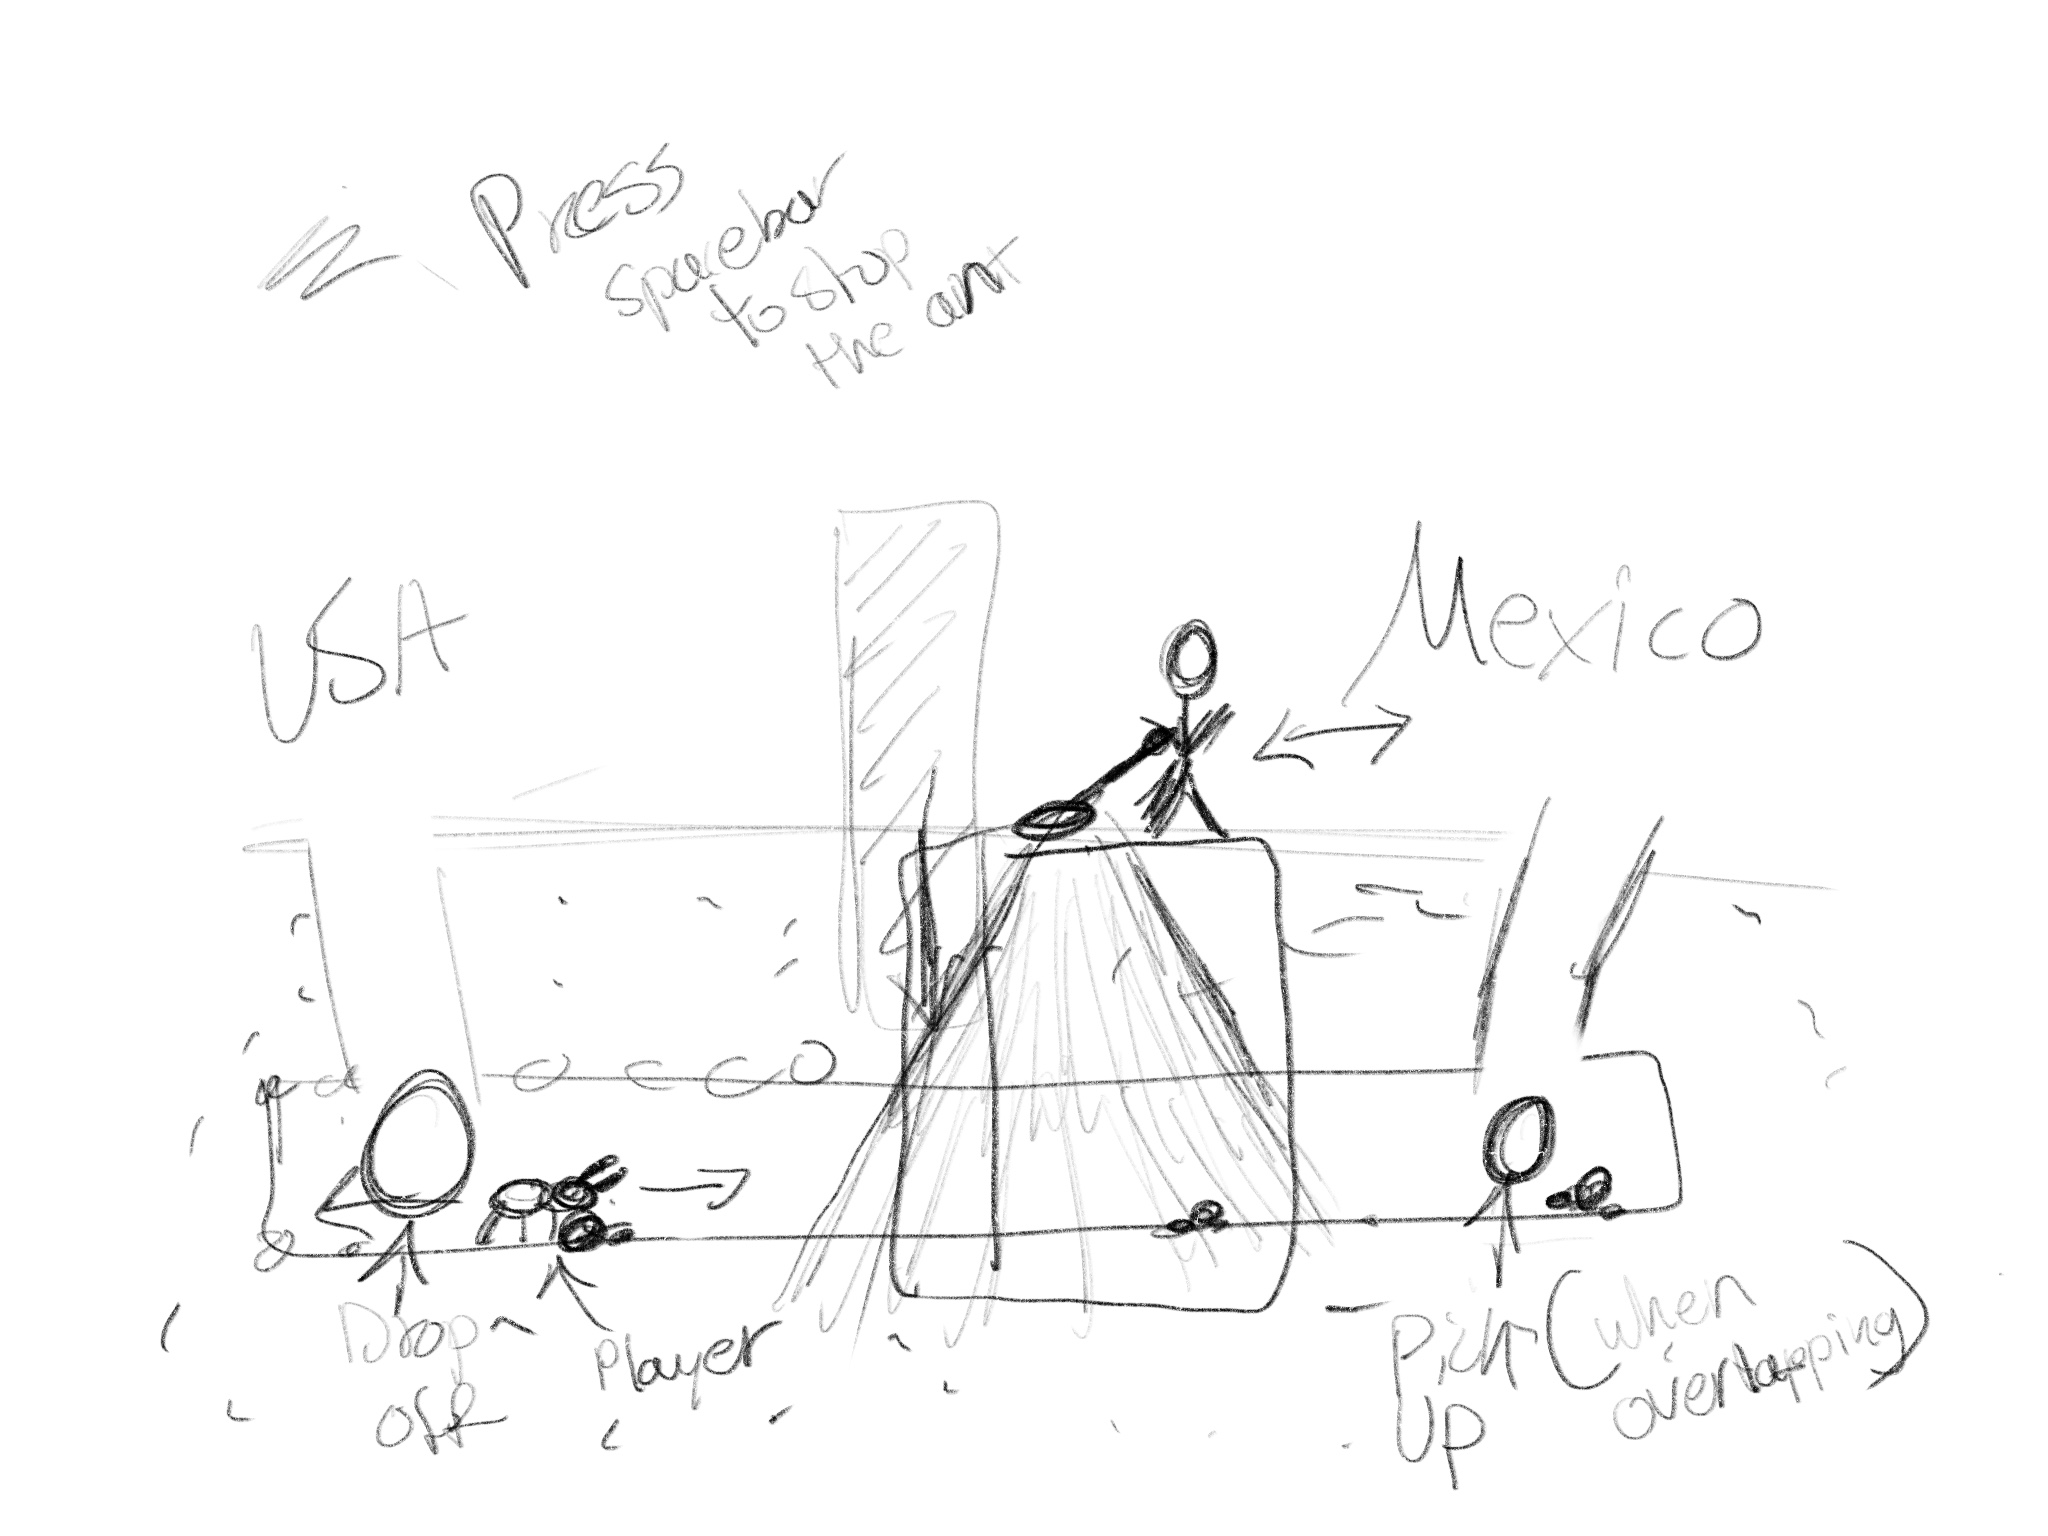 Press
spacebar
to stop
the ant
USA
Mexico
Drop
off
Player
Pick (when
overlapping)
Up